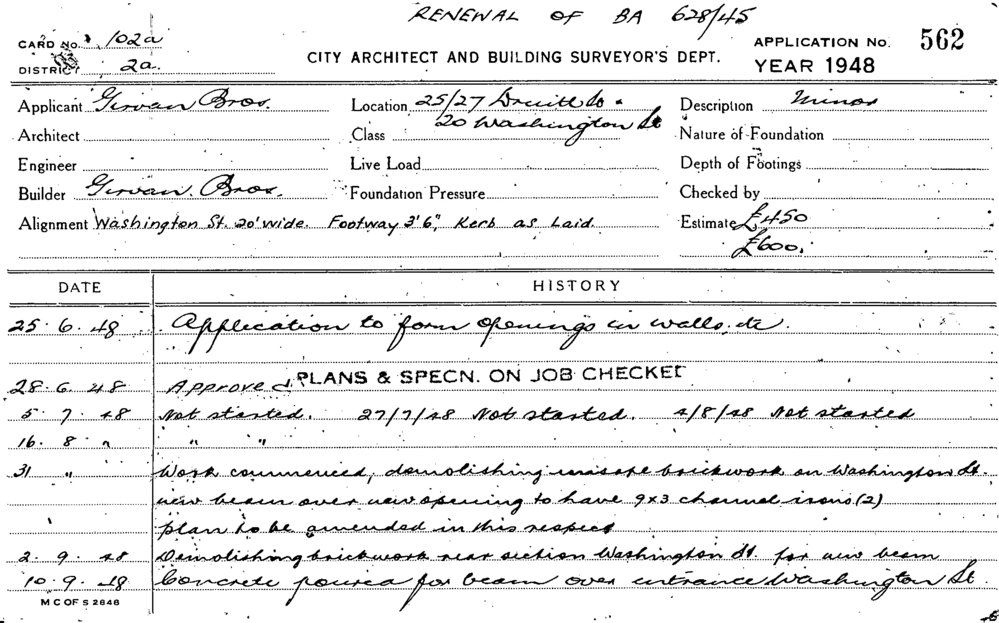 RENEWAL OF BA 628/45
CARD No. 102a
DISTRICT 2a.
CITY ARCHITECT AND BUILDING SURVEYOR'S DEPT.
APPLICATION No. 562
YEAR 1948
Applicant Girvan Bros. Location 25/27 Druitt St & Description Minor
Architect Class 20 Washington St Nature of Foundation
Engineer Live Load Depth of Footings
Builder Girvan Bros. Foundation Pressure Checked by
Alignment Washington St. 20' wide. Footway 3' 6", Kerb as Laid. Estimate £450
£600.
DATE HISTORY
25. 6. 48 Application to form openings in walls. etc.
28. 6. 48 Approved. PLANS & SPECN. ON JOB CHECKED
5. 7. 48 Not started. 27/7/48 Not started. 4/8/48 Not started
16. 8 " " "
31 " Work commenced, demolishing brickwork on Washington St.
new beam over new opening to have 9x3 channel irons (2)
plan to be amended in this respect
2. 9. 48 Demolishing brickwork rear section Washington St. for new beam
10. 9. 48 Concrete poured for beam over entrance Washington St.
M C OF S 2848